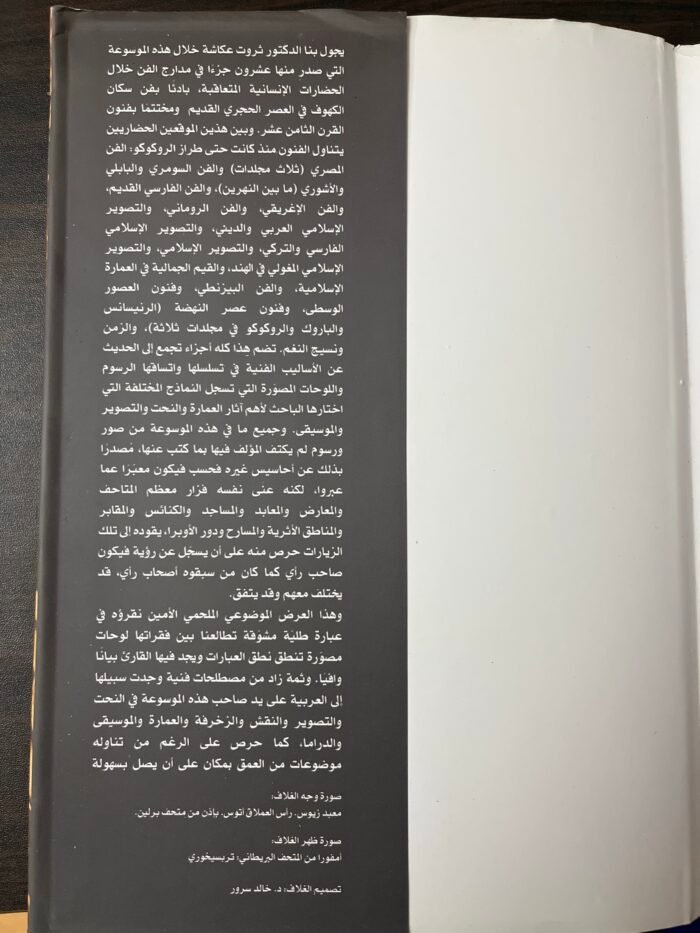 يجول بنا الدكتور ثروت عكاشة خلال هذه الموسوعة
التي صدر منها عشرون جزءًا في مدارج الفن خلال
الحضارات الإنسانية المتعاقبة، بادئا بفن سكان
الكهوف في العصر الحجري القديم ومختتمًا بفنون
القرن الثامن عشر. وبين هذين الموقعين الحضاريين
يتناول الفنون منذ كانت حتى طراز الروكوكو: الفن
المصري (ثلاث مجلدات) والفن السومري والبابلي
والأشوري (ما بين النهرين)، والفن الفارسي القديم،
والفن الإغريقي، والفن الروماني، والتصوير
الإسلامي العربي والديني، والتصوير الإسلامي
الفارسي والتركي، والتصوير الإسلامي، والتصوير
الإسلامي المغولي في الهند، والقيم الجمالية في العمارة
الإسلامية، والفن البيزنطي، وفنون العصور
الوسطى، وفنون عصر النهضة (الرنيسانس
والباروك والروكوكو في مجلدات ثلاثة)، والزمن
ونسيج النغم. تضم هذا كله أجزاء تجمع إلى الحديث
عن الأساليب الفنية في تسلسلها واتساقها الرسوم
واللوحات المصوّرة التي تسجل النماذج المختلفة التي
اختارها الباحث لأهم آثار العمارة والنحت والتصوير
والموسيقى. وجميع ما في هذه الموسوعة من صور
ورسوم لم يكتف المؤلف فيها بما كتب عنها، مُصدرًا
بذلك عن أحاسيس غيره فحسب فيكون معبّرًا عما
عبروا، لكنه عنى نفسه فزار معظم المتاحف
والمعارض والمعابد والمساجد والكنائس والمقابر
والمناطق الأثرية والمسارح ودور الأوبرا، يقوده إلى تلك
الزيارات حرص منه على أن يسجّل عن رؤية فيكون
صاحب رأي كما كان من سبقوه أصحاب رأي، قد
يختلف معهم وقد يتفق.
وهذا العرض الموضوعي الملحمي الأمين نقرؤه في
عبارة طليّة مشوّقة تطالعنا بين فقراتها لوحات
مصوّرة تنطق نطق العبارات ويجد فيها القارئ بيانًا
وافيًا. وثمة زاد من مصطلحات فنية وجدت سبيلها
إلى العربية على يد صاحب هذه الموسوعة في النحت
والتصوير والنقش والزخرفة والعمارة والموسيقى
والدراما، كما حرص على الرغم من تناوله
موضوعات من العمق بمكان على أن يصل بسهولة
صورة وجه الغلاف:
معبد زيوس. رأس العملاق أتوس. بإذن من متحف برلين.
صورة ظهر الغلاف:
أمفورا من المتحف البريطاني: تريسيخوري
تصميم الغلاف: د. خالد سرور